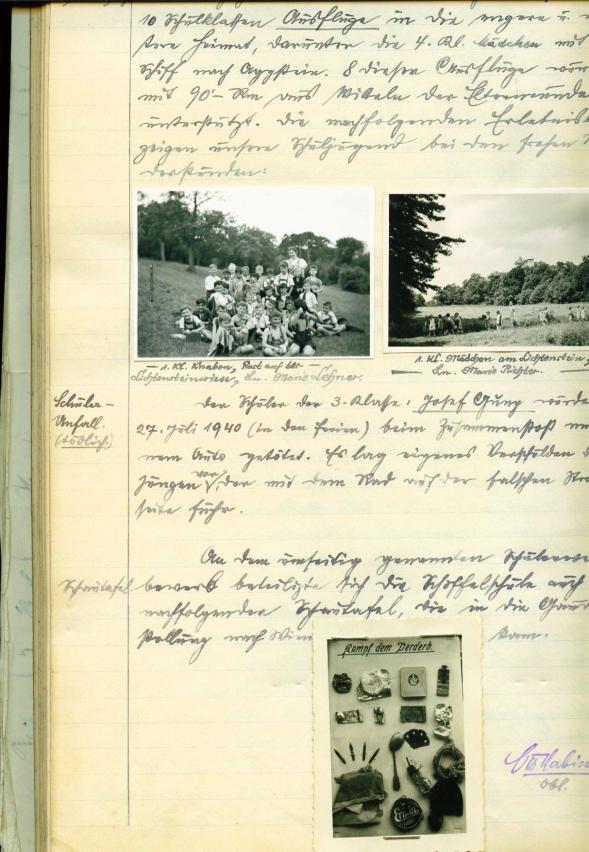 10 Schulklassen Ausflüge in die engere u.
tere Heimat, darunter die 4. Kl. Mädchen mit
Schiff nach Aggstein. 8 dieser Ausflüge
mit 90.- Rm aus Mitteln der
unterstützt. Die nachfolgenden
zeigen unsere Schuljugend bei den frohen
derstunden:
1. Kl. Knaben, Rast auf der
Lichtensteinwiese, Ln. Marie Lehner.
1. Kl. Mädchen am Lichtenstein,
Ln. Marie Richter.
Schüler-
Unfall.
(tödlich)
Der Schüler der 3. Klasse: Josef Gung wurde
27. Juli 1940 (in den Ferien) beim Zusammenstoß
nem Auto getötet. Es lag eigenes Verschulden
Jungen vor, der mit dem Rad auf der falschen
seite fuhr.
Schautafel
An dem umseitig genannten
bewerb beteiligte sich die Schöffelschule auch
nachfolgender Schautafel, die in die
stellung nach Wien kam.
Kampf dem Verderb.